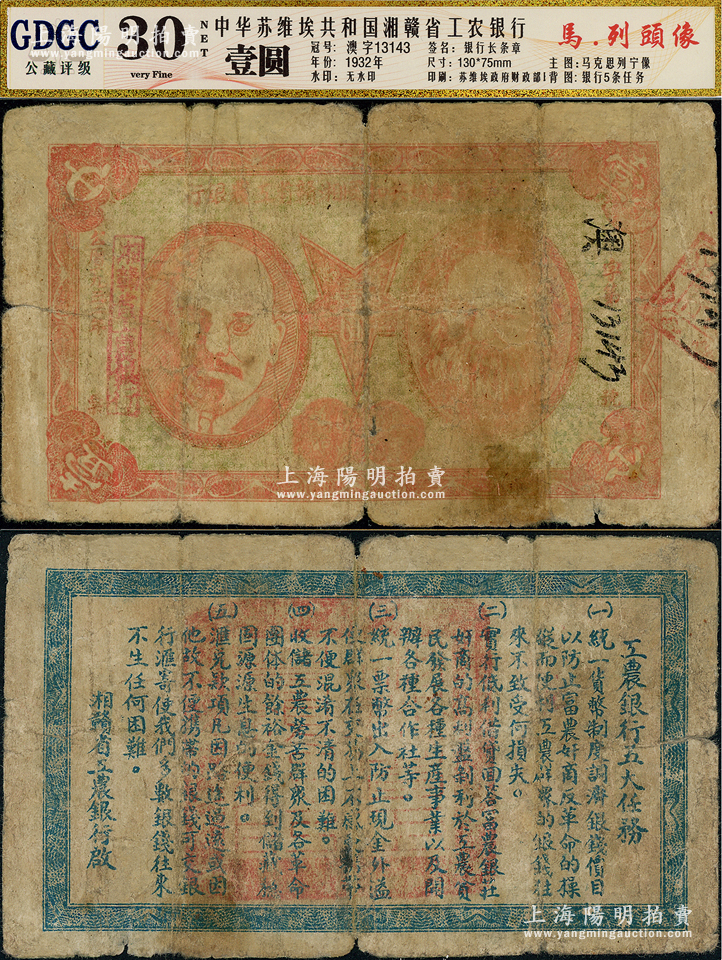 GDGC 30 NET
公藏评级 very Fine
中华苏维埃共和国湘赣省工农银行
壹圆
冠号：澳字13143 签名：银行长条章
年份：1932年 尺寸：130*75mm 主图：马克思列宁像
水印：无水印 印刷：苏维埃政府财政部 背图：银行5条任务
馬.列頭像
壹
澳
13143
號
上海陽明拍賣
www.yangmingauction.com
工農銀行五大任務
(一)統一貨幣制度調濟銀錢價目
以防止富農奸商反革命的操
縱而使得工農群眾的銀錢往
來不致受何損失。
(二)實行低利借貸
奸商的高利盤剝利於工農貧
民發展各種生產事業以及開
辦各種合作社等。
(三)統一票幣出入防止現金外溢
不便混淆不清的困難。
(四)收儲工農勞苦群眾及各革命
團体的餘裕金錢得到儲藏
固源源生息的便利。
(五)滙兌款項凡因路途遥遠或因
他故不便携帶的銀錢可交銀
行滙寄使我們多數銀錢往來
不生任何困難。
湘贛省工農銀行啟
上海陽明拍賣
www.yangmingauction.com